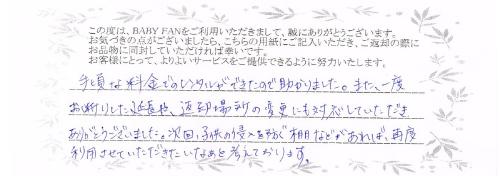 この度は、BABY FANをご利用いただきまして、誠にありがとうございます。
お気づきの点がございましたら、こちらの用紙にご記入いただき、ご返却の際に
お品物に同封していただければ幸いです。
お客様にとって、よりよいサービスをご提供できるように努力いたします。
手頃な料金でのレンタルができたので助かりました。また、一度
お断りした延長や、返却場所の変更にも対応していただき
ありがとうございました。次回、子供の侵入を防ぐ柵などがあれば、再度
利用させていただきたいなあと考えております。